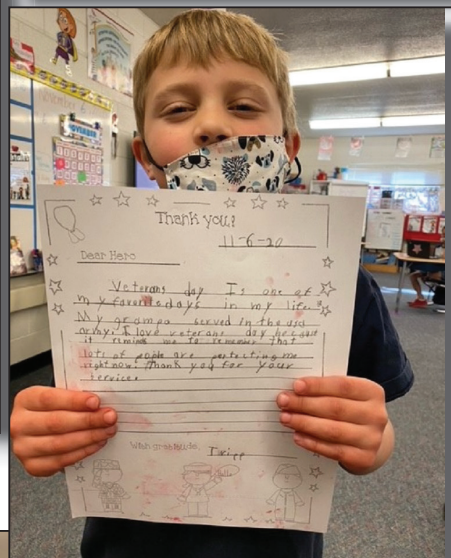 Thank you!
11-6-20
Dear Hero
Veterans day Is one of
my favorite days in my life.
My grampa served in the
army. I love veterans day because
it reminds me to remember that
lots of people are pertecting me
right now. Thank you for your
service.
With gratitude,